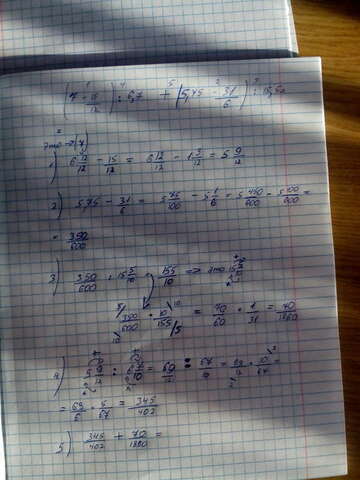 (7 - 15/12) : 6,7 + (5,75 - 31/6) : 15,5
это → (7)
1) 6 12/12 - 15/12 = 6 12/12 - 1 3/12 = 5 9/12
2) 5,75 - 31/6 = 5 75/100 - 5 1/6 = 5 450/600 - 5 100/600 =
= 350/600
3) 350/600 : 15 5/10 155/10 => это 15 5/10
350/600 · 10/155 = 70/60 · 1/31 = 70/1860
4) 5 9/12 : 6 7/10 = 69/12 : 67/10 = 69/12 · 10/67 =
= 69/6 · 5/67 = 345/402
5) 345/402 + 70/1860 =